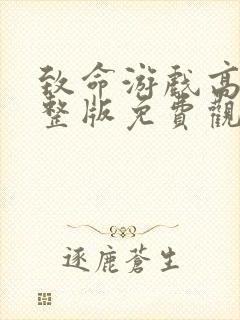 致命游戲高
整版免費觀
逐鹿蒼生